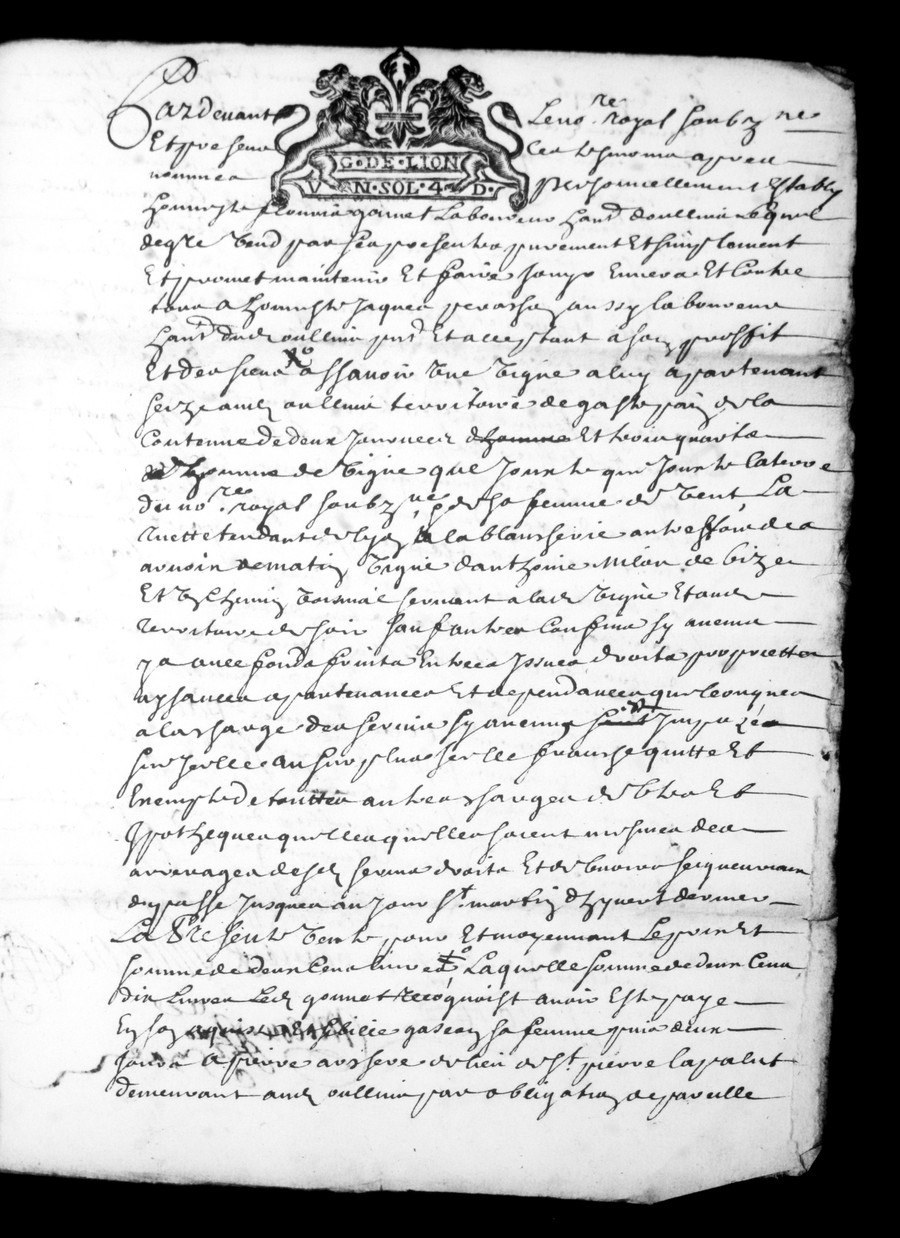 Pardevant Le no.re royal soubz.né
Et presens les tesmoins apres
nommés personnellement Estably
G·DE·LION
V N·SOL·4 D·
honneste gonnet Laboureur hant d'oullins Lequel
de gre Vend par ses presentes purement Et simplement
Et promet maintenir Et faire jouyr Envers Et Contre
tous a honneste Jaques aussy laboureur
hant dud oullins pnt Et acceptant a son proffit
Et des siens X° assavoir Une Vigne a luy apartenant
size aud oullins territoire de de la
Contenue de deux Journées d'homme Et trois quartz
d'homme de Vigne que Jouxte que Jouxte la terre
du no.re royal soubz.né de sa femme de Vent La
ruette tendant de lyon a la blancherie de
Vigne d'anthoine Milon de bize
Et Un Chemin Voisinal servant a lad Vigne Et aud
territoire de soir sauf autres Confins sy aucuns
y a avec fonds fruits Entrees Issues droits proprietes
aysances apartenances Et dependances quelconques
a la charge des servis sy aucuns sont Imposés
sur Jcelle au surplus Jcelle franche quitte Et
Exempte de touttes autres charges debtes Et
Ypotheques quelles quelles soient mesmes des
arrerages desd servis droits Et debvoirs seigneuriaux
du passe Jusques au Jour St. martin d'hyvert dernier
La Presente Vente pour Et moyennant Le prix Et
somme de deux Cens livres X° Laquelle somme de deux Cens
dix Livres Led gonnet recoquoist avoir Este paye
En son acquist Et sa femme puis deux
Jours a pierre de lieu de St. pierre la palut
demeurant aud oullins par obligation de pareille